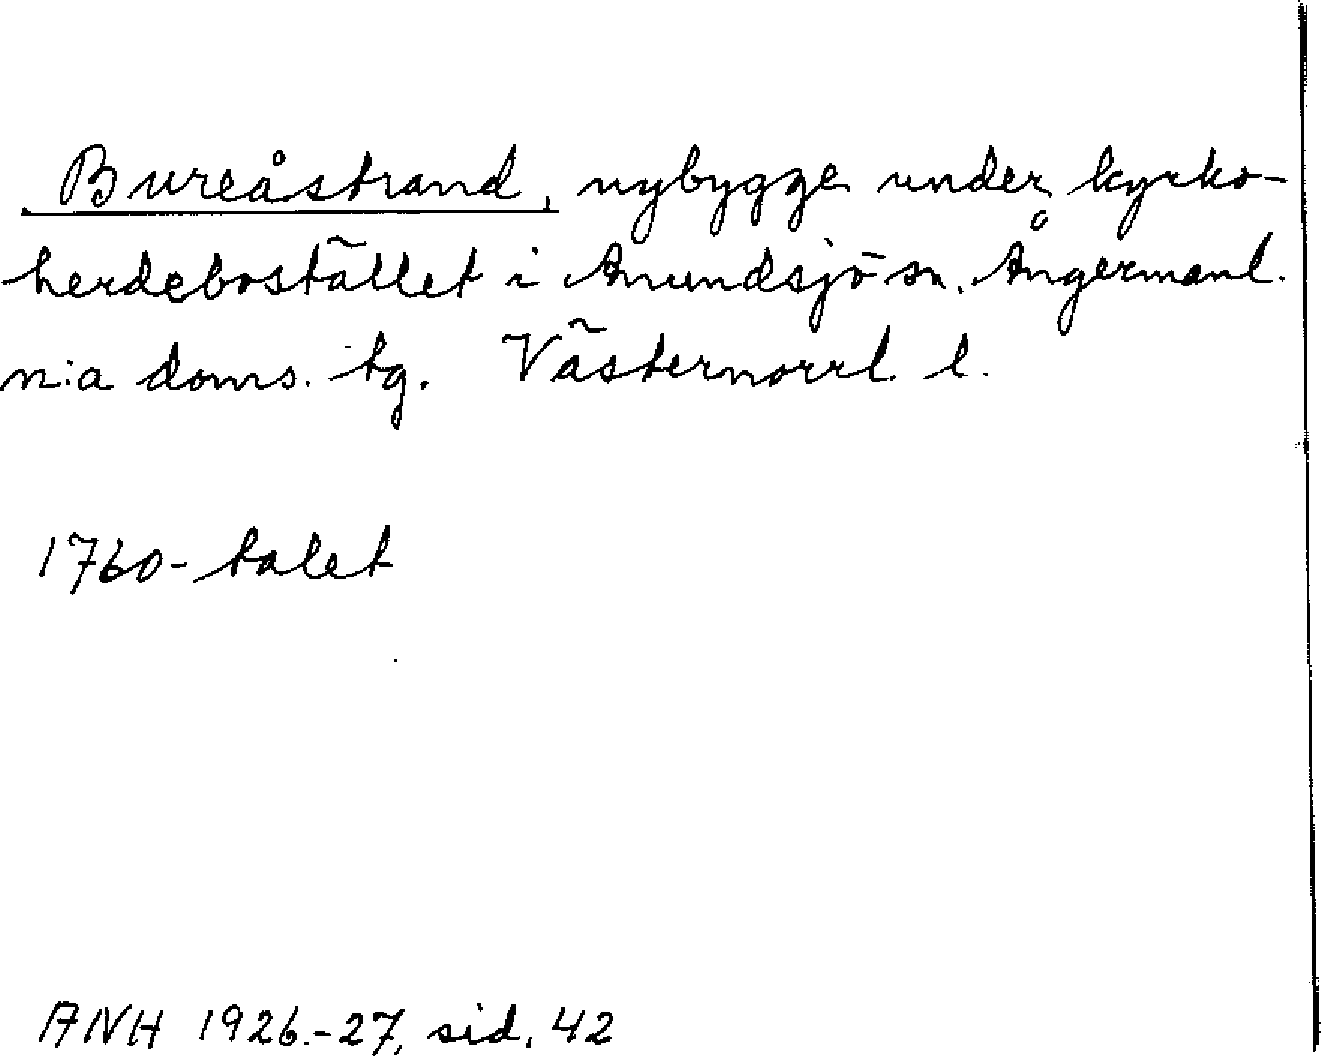 Bureåstrand, nybygge under kyrko-
herdebostället i Anundsjö sn. Ångermanl.
n:a doms. tg. Västernorrl. l.
1760-talet
ANH 1926.-27, sid. 42